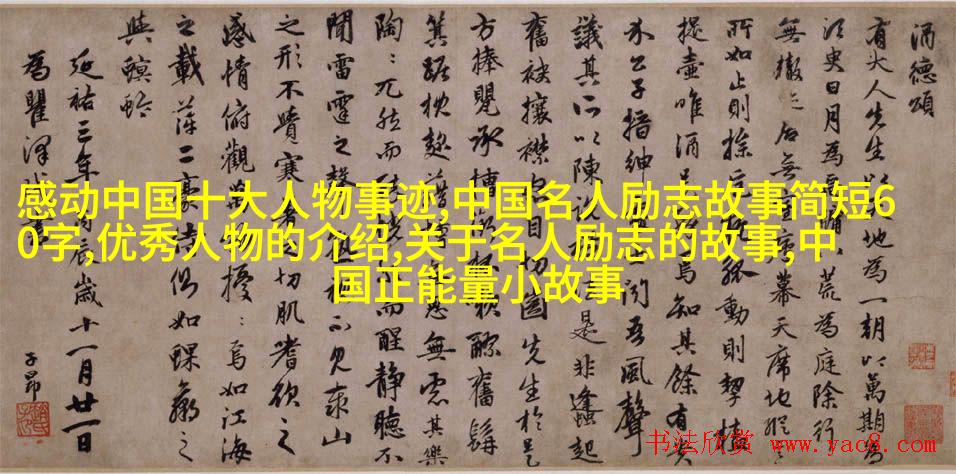 酒德頌
有大人先生以地為一朝以萬期為
須臾日月為荒為庭除行
無轍迹居無幕天席地縱
所如止則操觚動則挈榼
提壺唯酒是焉知其餘有貴
介公子搢紳聞吾風聲
議其所以陳說是非蠭起
奮袂攘襟怒目切齒先生於是
方捧甖承槽漱醪奮髯
箕踞枕麴藉無慮其樂
陶〻兀然而恍而醒靜聽不
聞雷霆之聲不見泰山
之形不覺寒暑之切肌嗜欲之
感情俯觀萬擾〻焉如江海
之載萍二豪侍側如蜾蠃之
與螟蛉
延祐三年丙辰歲十一月廿一日
為瞿澤
子昂
感动中国十大人物事迹,中国名人励志故事简短6
0字,优秀人物的介绍,关于名人励志的故事,中
国正能量小故事
书法欣赏 www.yac8.com